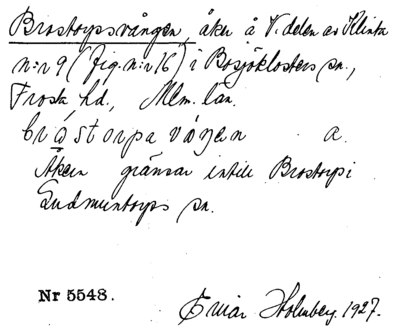 Brostorpsvången, åker å V. delen av Klinta
n:r 9 (fig. n:r 16) i Bosjöklosters sn.,
Frosta hd., Mlm. län.
bråstorpavåŋen a.
Åkern gränsar intill Brostorp i
Gudmuntorps sn.
Nr 5548.
Einar Holmberg. 1927.